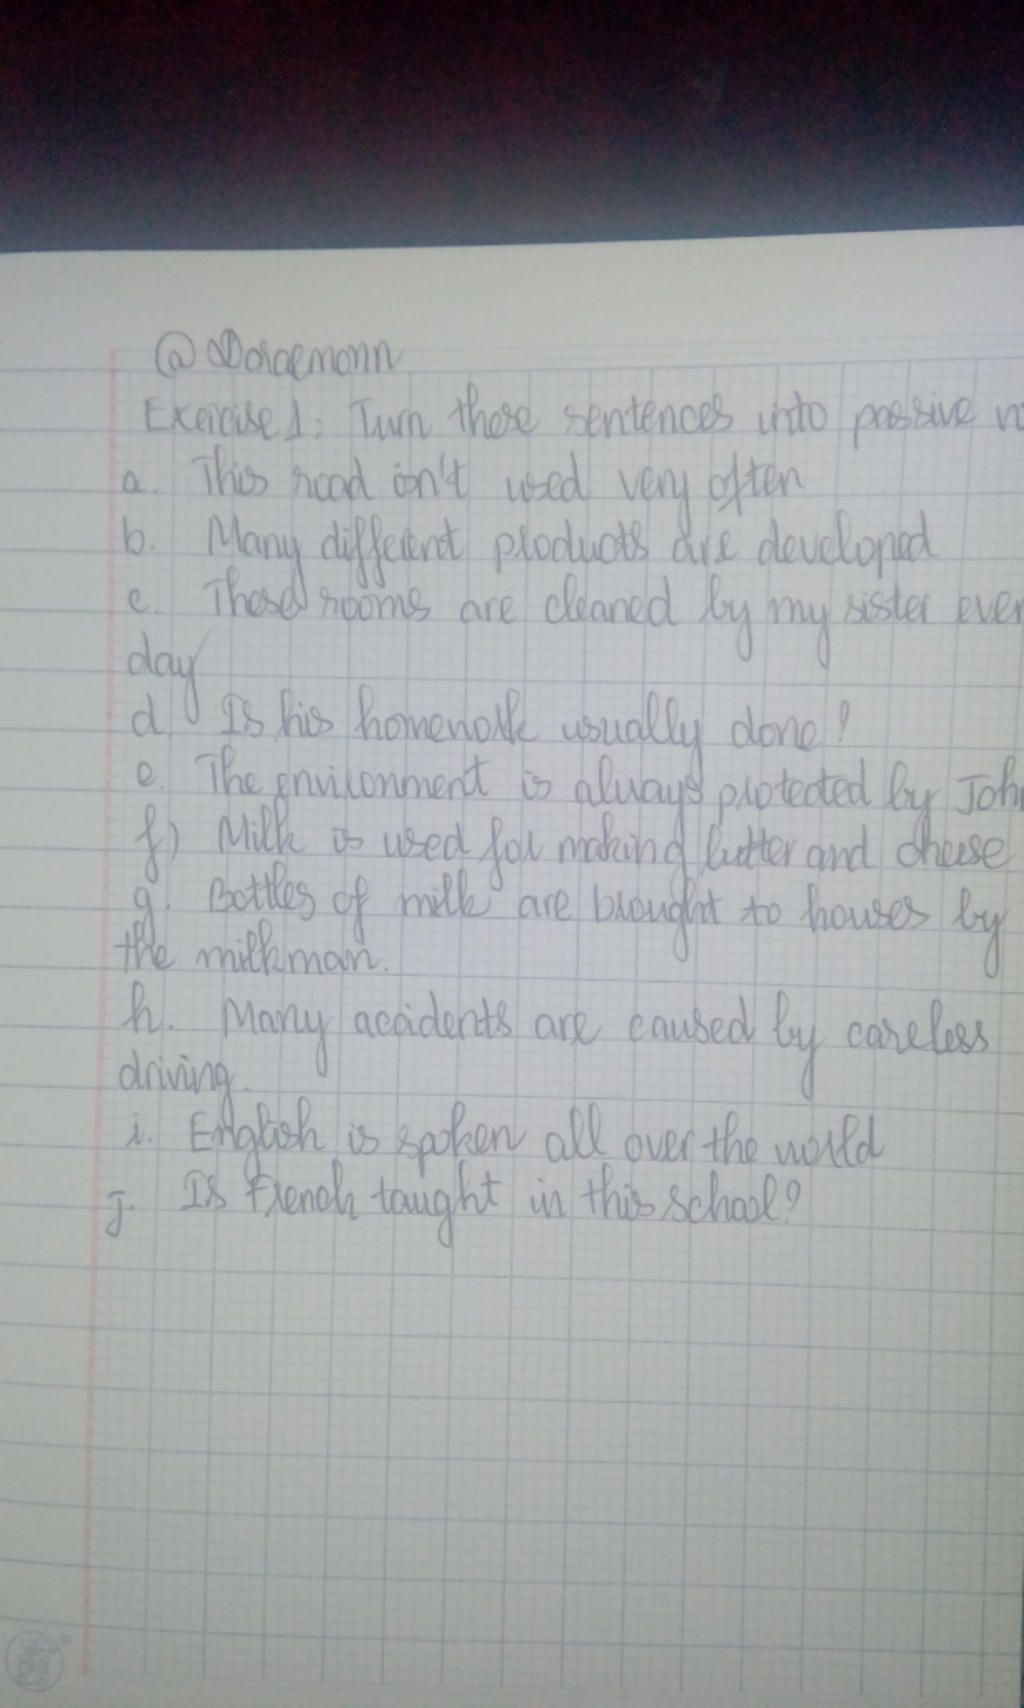 @Doraemonn
Exercise 1: Turn these sentences into passive
a. This road isn't used very often
b. Many different products are developed
c. These rooms are cleaned by my sister
day
d. Is his homework usually done?
e. The environment is always protected by
f) Milk is used for making butter and cheese
g. Bottles of milk are brought to houses by
the milkman.
h. Many accidents are caused by careless
driving.
i. English is spoken all over the world
j. Is French taught in this school?